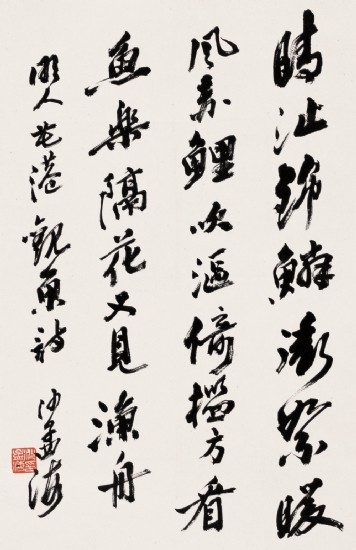 晴沚錦鱗衝絮暖
風赤鯉吹漚倚檻方看
魚樂隔花又見漁舟
明人花港觀魚詩 沙孟海